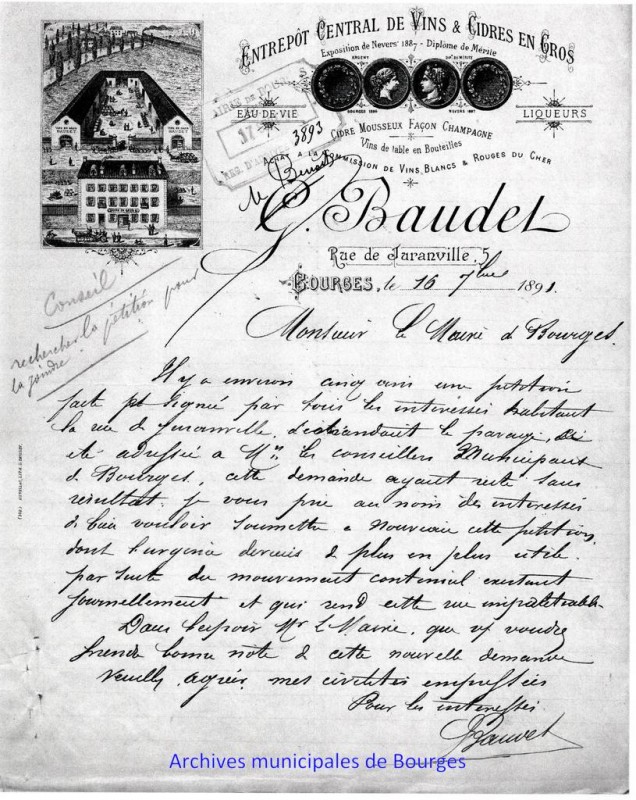 ENTREPÔT CENTRAL DE VINS & CIDRES EN GROS
Exposition de Nevers 1887 - Diplôme de Mérite
EAU-DE-VIE
LIQUEURS
CIDRE MOUSSEUX FAÇON CHAMPAGNE
Vins de table en Bouteilles
COMMISSION DE VINS BLANCS & ROUGES DU CHER
3893
G. Baudet
Rue de Juranville, 5
BOURGES, le 16 7bre 1891.
Conseil
rechercher la pétition pour
la joindre
Monsieur le Maire de Bourges.
Il y a environ cinq ans une pétition
faite et signée par tous les interessés habitant
la rue de Juranville, demandant le pavage,
été adressée a Mrs les conseillers Municipaux
de Bourges, cette demande ayant resté sans
resultat. je vous prie au nom des interessés
de bien vouloir soumettre a nouveau cette petition,
dont l'urgence devenue de plus en plus utile
par suite du mouvement continuel existant
journellement et qui rend cette rue impraticable.
Dans l'espoir Mr le Maire, que vs voudrez
prendre bonne note de cette nouvelle demande
Veuillez agréer mes civilités empressées
Pour les interessés
Baudet
Archives municipales de Bourges